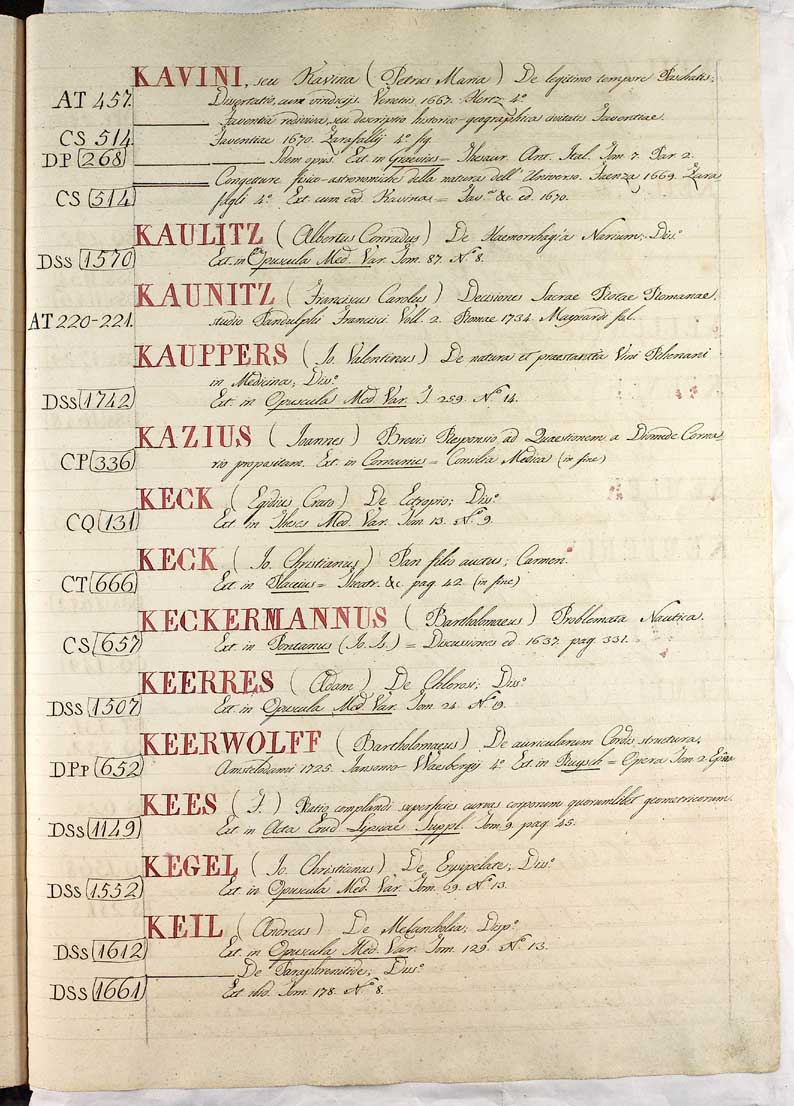 KAVINI, seu Kavina (Petrus Maria) De legitimo tempore Paschatis;
AT 457. Dissertatio, cum vindicijs. Venetiis 1667. Hertz 4º
Faventia rediviva, seu descriptio historico-geographica civitatis Faventiae.
CS 514 Faventiae 1670. Zarafallij 4º fig.
DP 268 Idem opus. Ext. in Graevius = Thesaur. Ant. Ital. Tom 7. Par 2.
Congetture fisico-astronomiche della natura dell' Universo. Faenza 1669. Zara
CS 514 fagli 4º. Ext. cum eod. Kavina = &c ed 1670.
KAULITZ (Albertus Conradus) De Haemorrhagia Narium; Dis.º
DSs 1570 Ext. in Opuscula Med. Var. Tom. 87. Nº 8.
KAUNITZ (Franciscus Carolus) Decisiones Sacrae Rotae Romanae.
AT 220-221. studio Pandulphi Francisci Voll. 2. Romae 1734. Maynardi fol.
KAUPPERS (Jo. Valentinus) De natura et praestantia Vini Rhenani
in Medicina; Dis.º
DSs 1742 Ext. in Opuscula Med. Var. T. 259. Nº 14.
KAZIUS (Joannes) Brevis Responsio ad Quaestionem a Diomede Corna
CP 336 rio propositam. Ext. in Cornarius = Consilia Medica (in fine)
KECK (Egidius Crato) De Ectropio; Dis.º
CQ 131 Ext. in Theses Med. Var. Tom 13. Nº 9.
KECK (Jo. Christianus) Pan filio auctus; Carmen.
CT 666 Ext. in Placcius = Theatr. &c. pag 42. (in fine)
KECKERMANNUS (Bartholomaeus) Problemata Nautica.
CS 657 Ext. in Pontanus (Jo. Is.) = Discussiones ed 1637. pag. 331.
KEERRES (Adam) De Chlorosi; Dis.º
DSs 1507 Ext. in Opuscula Med. Var. Tom 24. Nº 19.
KEERWOLFF (Bartholomaeus) De auricularum Cordis structura;
DPp 652 Amstelodami 1725. Jansonio-Waesbergij 4º. Ext in Ruysch = Opera Tom 2.
KEES (J.) Ratio complandi superficies curvas corporum quorumlibet geometricorum.
DSs 1149 Ext in Acta Erud Lipsiae Suppl. Tom. 9. pag 45.
KEGEL (Jo. Christianus) De Erysipelate, Dis.º
DSs 1552 Ext. in Opuscula Med. Var. Tom. 69. Nº 13.
KEIL (Andreas) De Melancholia; Disp.º
DSs 1612 Ext. in Opuscula Med. Var. Tom. 129. Nº 13.
De Paraphrenitide; Dis.º
DSs 1661 Ext. ibid. Tom. 178. Nº 8.